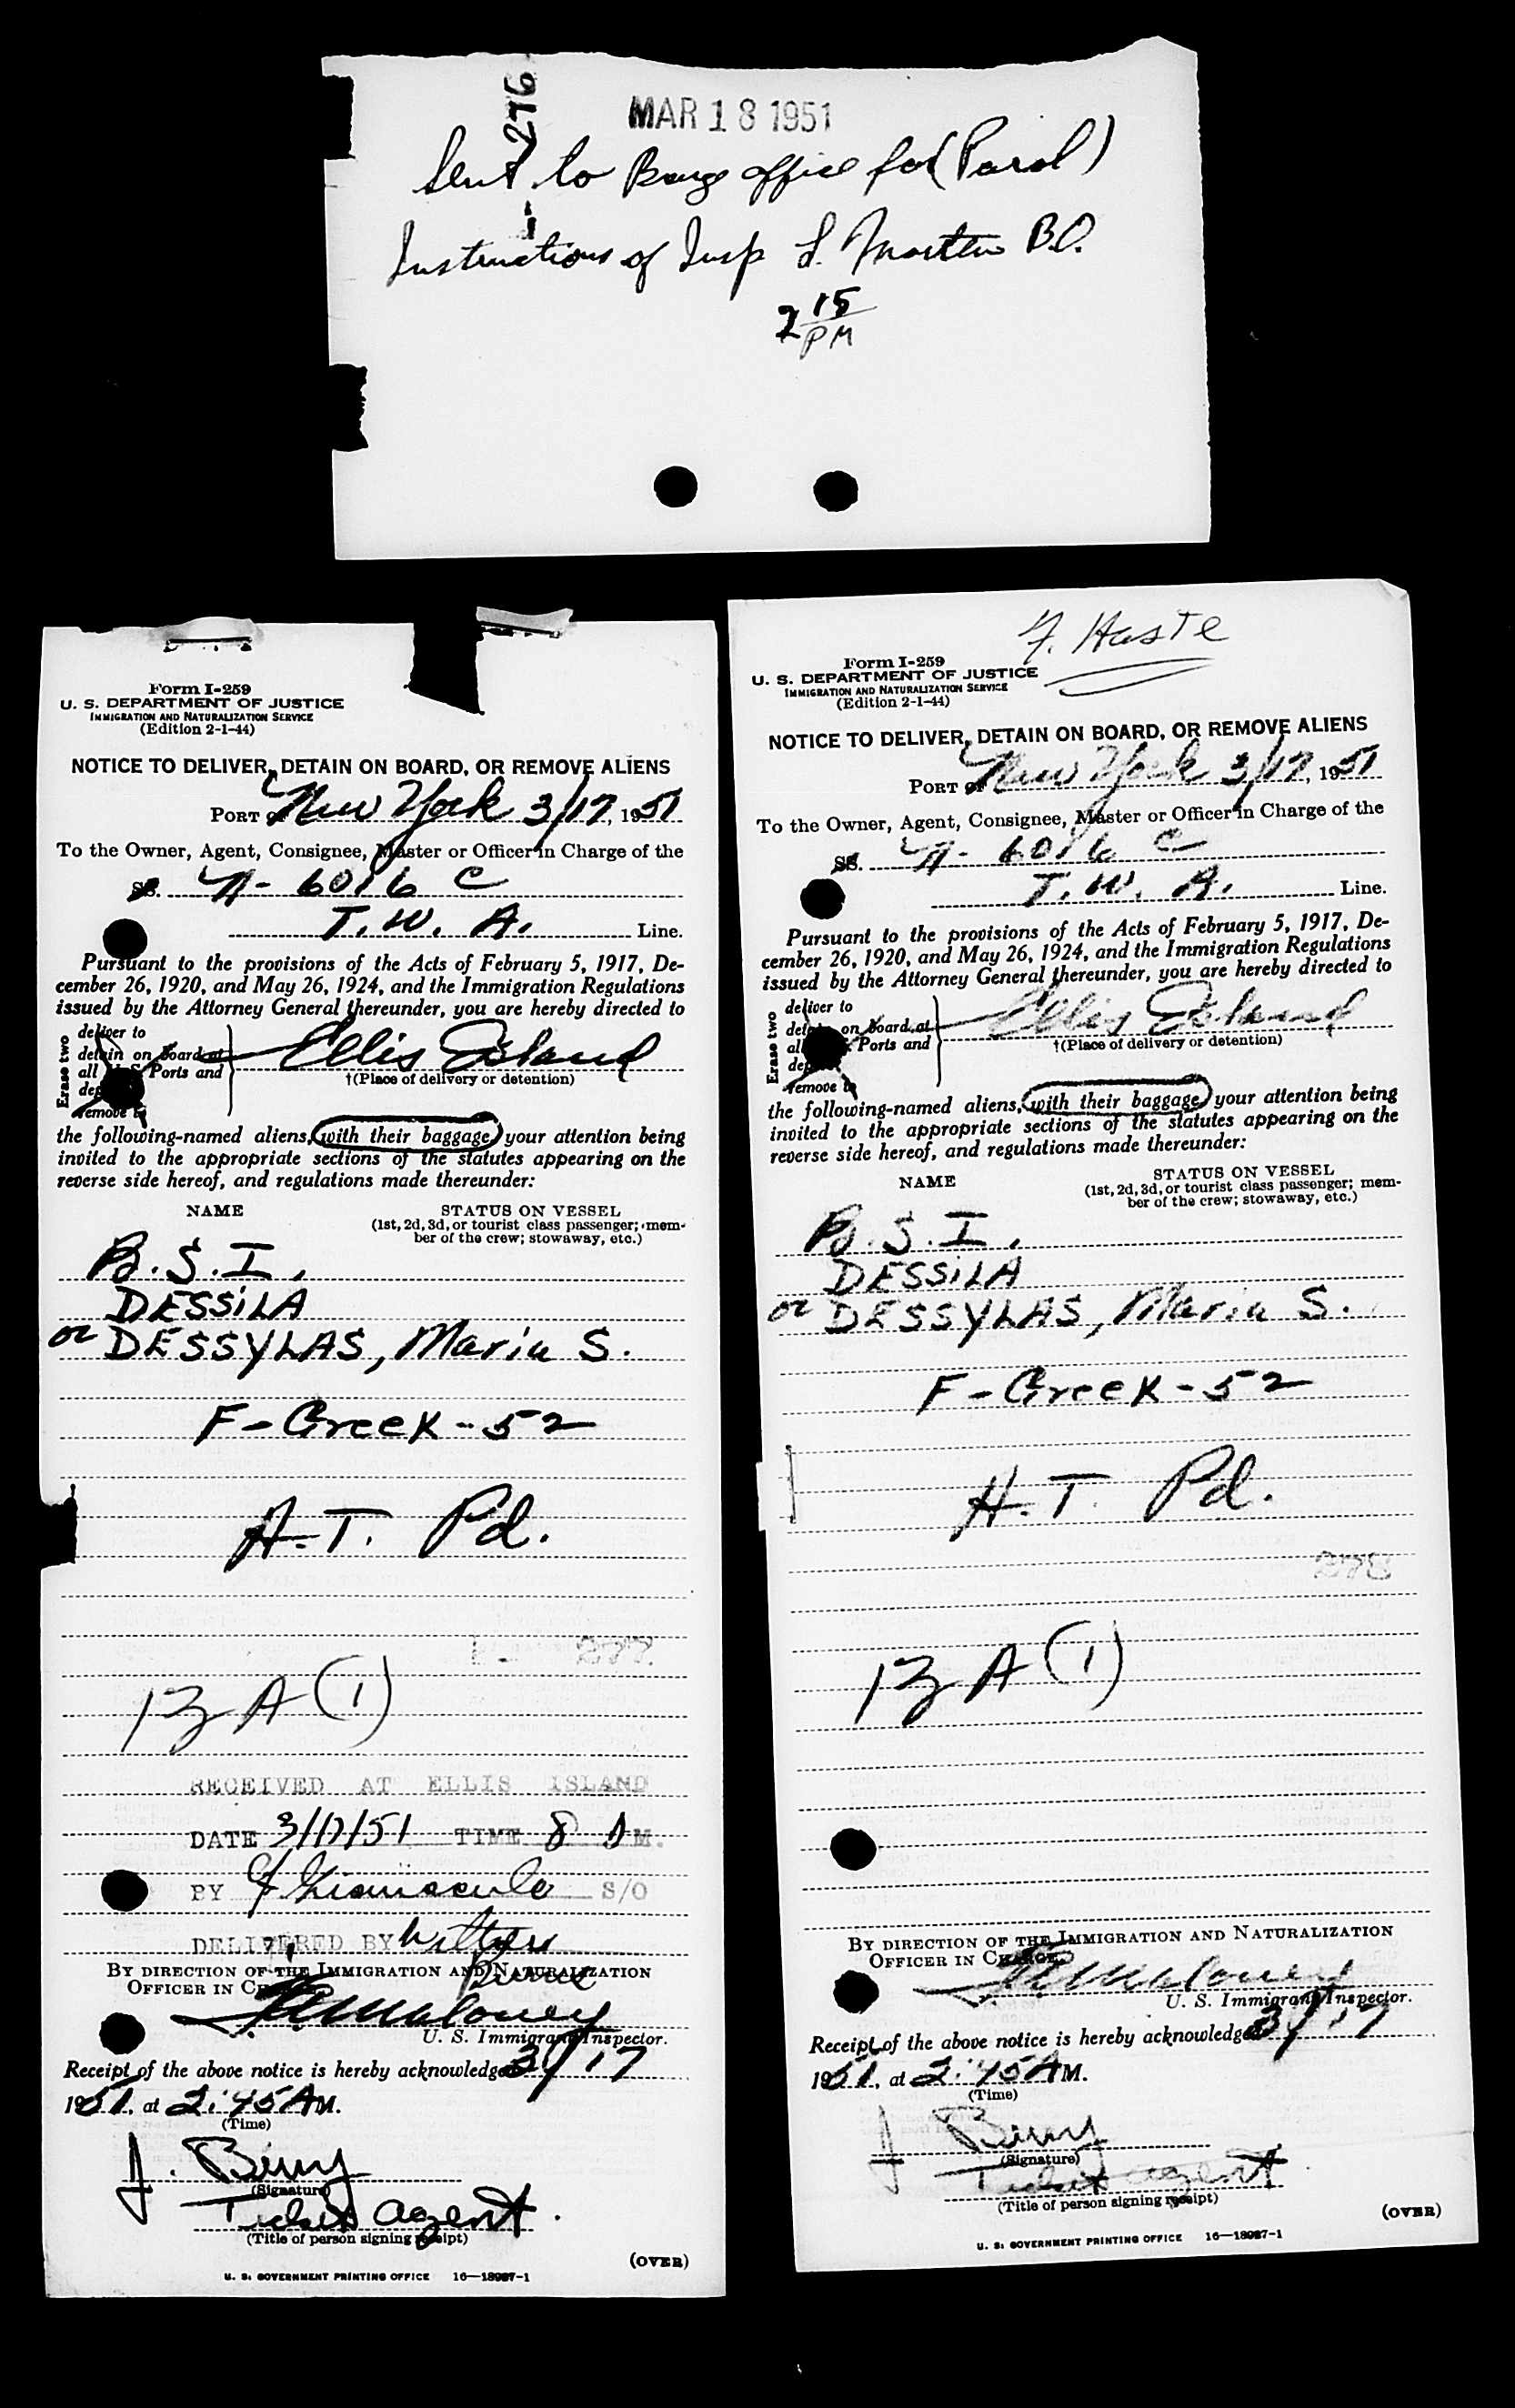 276
MAR 18 1951
Sent to Barge office for (Parol)
Instructions of Insp S. Martin B.O.
2 15 PM
Form I-259
U. S. DEPARTMENT OF JUSTICE
IMMIGRATION AND NATURALIZATION SERVICE
(Edition 2-1-44)
NOTICE TO DELIVER, DETAIN ON BOARD, OR REMOVE ALIENS
PORT of New York 3/17, 1951
To the Owner, Agent, Consignee, Master or Officer in Charge of the
SS. N-6016 C
T. W. A. Line.
Pursuant to the provisions of the Acts of February 5, 1917, De-
cember 26, 1920, and May 26, 1924, and the Immigration Regulations
issued by the Attorney General thereunder, you are hereby directed to
Erase two
deliver to
detain on board at
all U.S. Ports and
remove to
Ellis Island
†(Place of delivery or detention)
the following-named aliens, with their baggage, your attention being
invited to the appropriate sections of the statutes appearing on the
reverse side hereof, and regulations made thereunder:
NAME STATUS ON VESSEL
(1st, 2d, 3d, or tourist class passenger; mem-
ber of the crew; stowaway, etc.)
B.S.I.
DESSiLA
or DESSYLAS, Maria S.
F-Greek-52
H.T. Pd.
277
13 A (1)
RECEIVED AT ELLIS ISLAND
DATE 3/17/51 TIME 8 AM.
BY S/O
DELIVERED BY
BY DIRECTION OF THE IMMIGRATION AND NATURALIZATION
OFFICER IN CHARGE
Maloney
U. S. Immigrant Inspector.
Receipt of the above notice is hereby acknowledged 3/17
1951, at 2:45 AM.
(Time)
J. Biny
(Signature)
Ticket agent.
(Title of person signing receipt)
(OVER)
U. S. GOVERNMENT PRINTING OFFICE 16—18987-1
F. Haste
Form I-259
U. S. DEPARTMENT OF JUSTICE
IMMIGRATION AND NATURALIZATION SERVICE
(Edition 2-1-44)
NOTICE TO DELIVER, DETAIN ON BOARD, OR REMOVE ALIENS
PORT of New York 3/17, 1951
To the Owner, Agent, Consignee, Master or Officer in Charge of the
SS. N-6016 C
T. W. A. Line.
Pursuant to the provisions of the Acts of February 5, 1917, De-
cember 26, 1920, and May 26, 1924, and the Immigration Regulations
issued by the Attorney General thereunder, you are hereby directed to
Erase two
deliver to
detain on board at
all Ports and
remove to
Ellis Island
†(Place of delivery or detention)
the following-named aliens, with their baggage, your attention being
invited to the appropriate sections of the statutes appearing on the
reverse side hereof, and regulations made thereunder:
NAME STATUS ON VESSEL
(1st, 2d, 3d, or tourist class passenger; mem-
ber of the crew; stowaway, etc.)
B.S.I.
DESSiLA
or DESSYLAS, Maria S.
F-Greek-52
H.T. Pd.
278
13 A (1)
BY DIRECTION OF THE IMMIGRATION AND NATURALIZATION
OFFICER IN CHARGE
Maloney
U. S. Immigrant Inspector.
Receipt of the above notice is hereby acknowledged 3/17
1951, at 2:45 AM.
(Time)
J Biny
(Signature)
Ticket agent
(Title of person signing receipt)
(OVER)
U. S. GOVERNMENT PRINTING OFFICE 16—18987-1